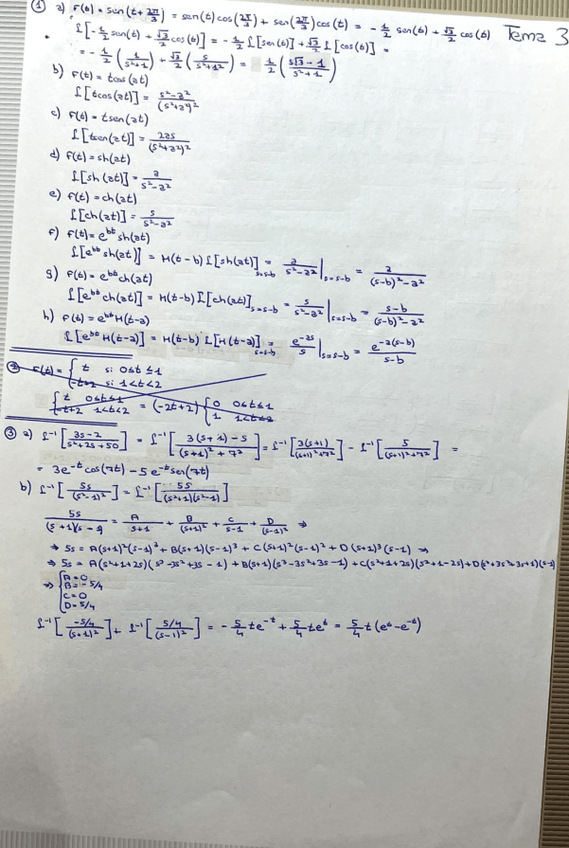 Tema 3
① a) F(t) = sen(t+2π/3) = sen(t)cos(2π/3) + sen(2π/3)cos(t) = -1/2 sen(t) + √3/2 cos(t)
L[-1/2 sen(t) + √3/2 cos(t)] = -1/2 L[sen(t)] + √3/2 L[cos(t)] =
= -1/2 (1/(s²+1)) + √3/2 (s/(s²+1²)) = 1/2 ((s√3-1)/(s²+1))
b) F(t) = tcos(at)
L[tcos(at)] = (s²-a²)/(s²+a²)²
c) F(t) = tsen(at)
L[tsen(at)] = 2as/(s²+a²)²
d) F(t) = sh(at)
L[sh(at)] = a/(s²-a²)
e) F(t) = ch(at)
L[ch(at)] = s/(s²-a²)
f) F(t) = e^bt sh(at)
L[e^bt sh(at)] = H(t-b) L[sh(at)] s=s-b = a/(s²-a²)|s=s-b = a/((s-b)²-a²)
g) F(t) = e^bt ch(at)
L[e^bt ch(at)] = H(t-b) L[ch(at)] s=s-b = s/(s²-a²)|s=s-b = (s-b)/((s-b)²-a²)
h) F(t) = e^bt H(t-a)
L[e^bt H(t-a)] = H(t-b) L[H(t-a)] s=s-b = e^-as/s|s=s-b = e^-a(s-b)/(s-b)
② F(t) = { t si 0≤t≤1
-t+2 si 1<t<2
{ t 0≤t≤1
-t+2 1<t<2 = (-2t+2) { 0 0≤t≤1
1 1<t<2
③ a) L⁻¹[(3s-2)/(s²+2s+50)] = L⁻¹[(3(s+1)-5)/((s+1)²+7²)] = L⁻¹[3(s+1)/((s+1)²+7²)] - L⁻¹[5/((s+1)²+7²)] =
= 3e^-t cos(7t) - 5e^-t sen(7t)
b) L⁻¹[5s/(s²-1)²] = L⁻¹[5s/((s²+1)(s²-1))]
= A/(s+1) + B/(s+1)² + C/(s-1) + D/(s-1)² ⇒
⇒ 5s = A(s+1)²(s-1)³ + B(s+1)(s-1)³ + C(s+1)²(s-1)² + D(s+1)³(s-1) ⇒
⇒ 5s = A(s²+1+2s)(s³-3s²+3s-1) + B(s+1)(s³-3s²+3s-1) + C(s²+1+2s)(s²+1-2s) + D(s³+3s²+3s+1)(s-1)
⇒ { A=0
B=-5/4
C=0
D=5/4
L⁻¹[(-5/4)/(s+1)²] + L⁻¹[(5/4)/(s-1)²] = -5/4 te^-t + 5/4 te^t = 5/4 t(e^t-e^-t)